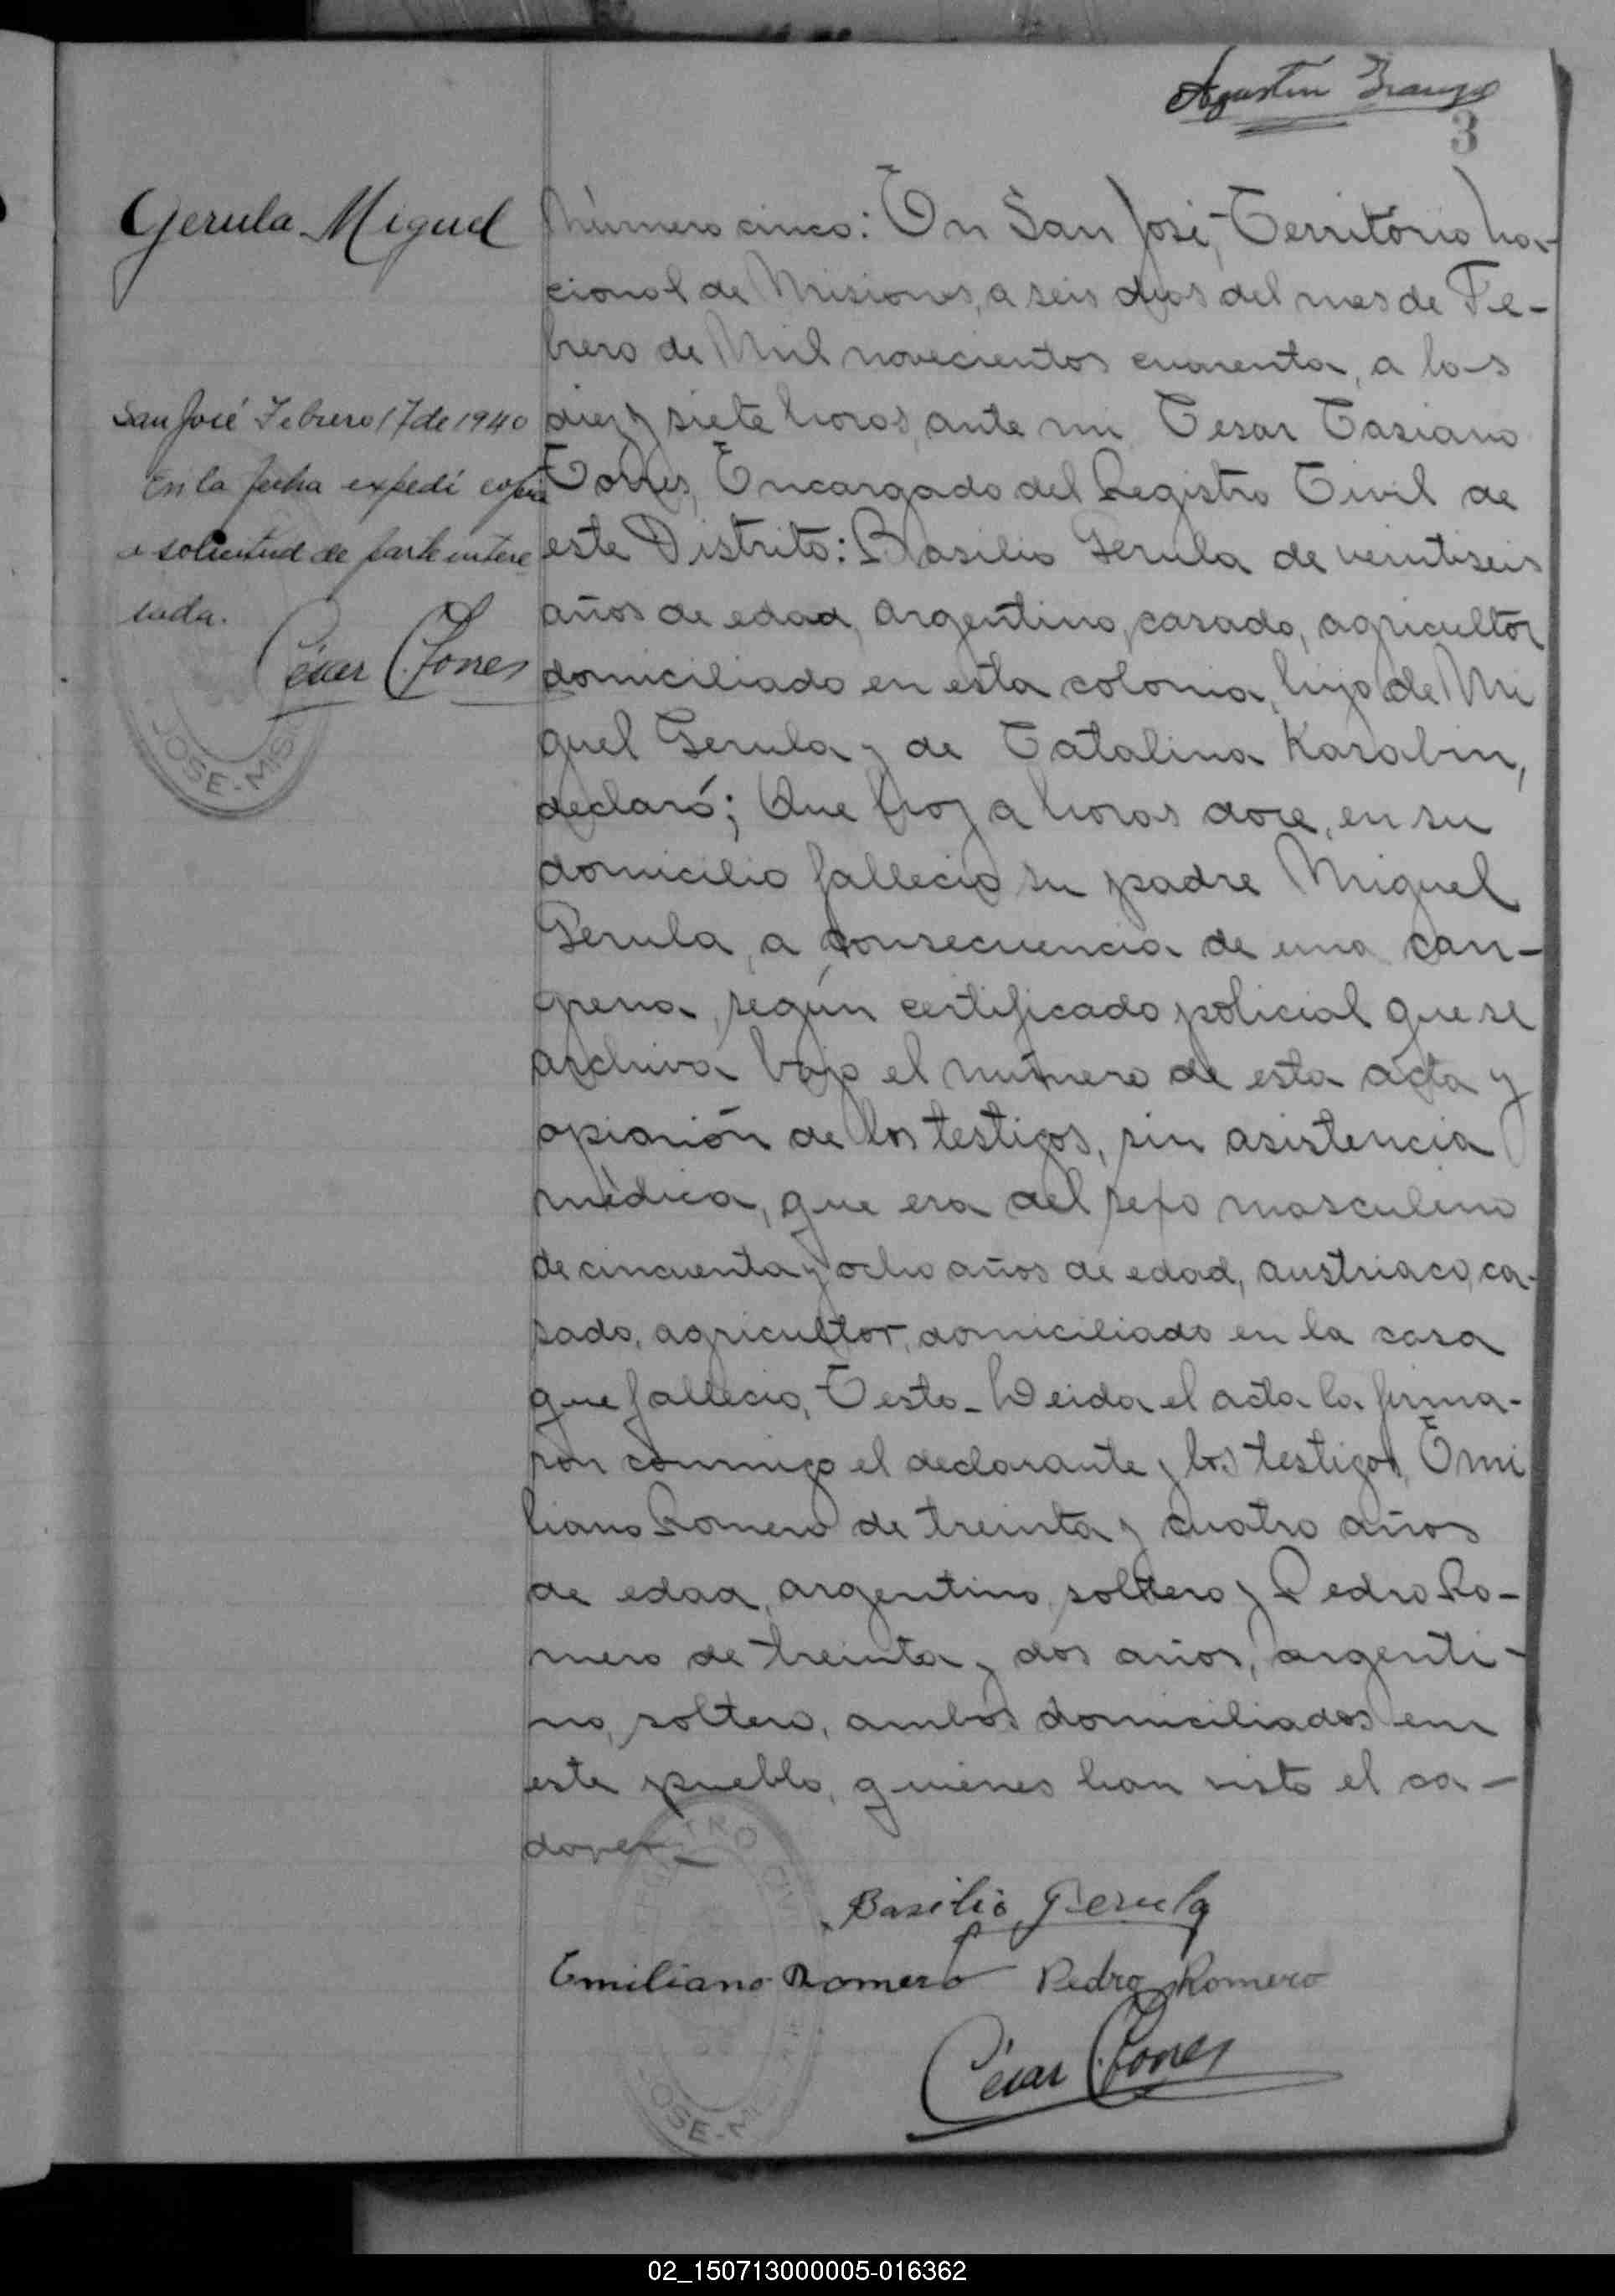 Agustin
3
Gerula Miguel
San José Febrero 17 de 1940
En la fecha expedí copia
a solicitud de parte intere
sada.
César C. Torres
JOSE-MIS
Número cinco: En San José, Territorio Na-
cional de Misiones, a seis dias del mes de Fe-
brero de Mil novecientos cuarenta, a las
diez y siete horas, ante mi Cesar Casiano
Torres, Encargado del Registro Civil de
este Distrito: Basilio Gerula de veintiseis
años de edad, argentino, casado, agricultor
domiciliado en esta colonia, hijo de Mi
guel Gerula y de Catalina Karabin,
declaró; Que hoy a horas doce, en su
domicilio fallecio su padre Miguel
Gerula, a consecuencia de una can-
grena, según certificado policial que se
archiva bajo el número de esta acta y
opinión de los testigos, sin asistencia
médica, que era del sexo masculino
de cincuenta y ocho años de edad, austriaco, ca-
sado, agricultor, domiciliado en la casa
que fallecio, Leida el acta la firma-
ron conmigo el declarante y los testigos, Emi
liano Romero de treinta y cuatro años
de edad, argentino, soltero y Pedro Ro-
mero de treinta y dos años, argenti-
no, soltero, ambos domiciliados en
este pueblo, quiénes han visto el ca-
daver.-
Basilio Gerula
Emiliano Romero Pedro Romero
César C. Torres
OSE-M
02_150713000005-016362